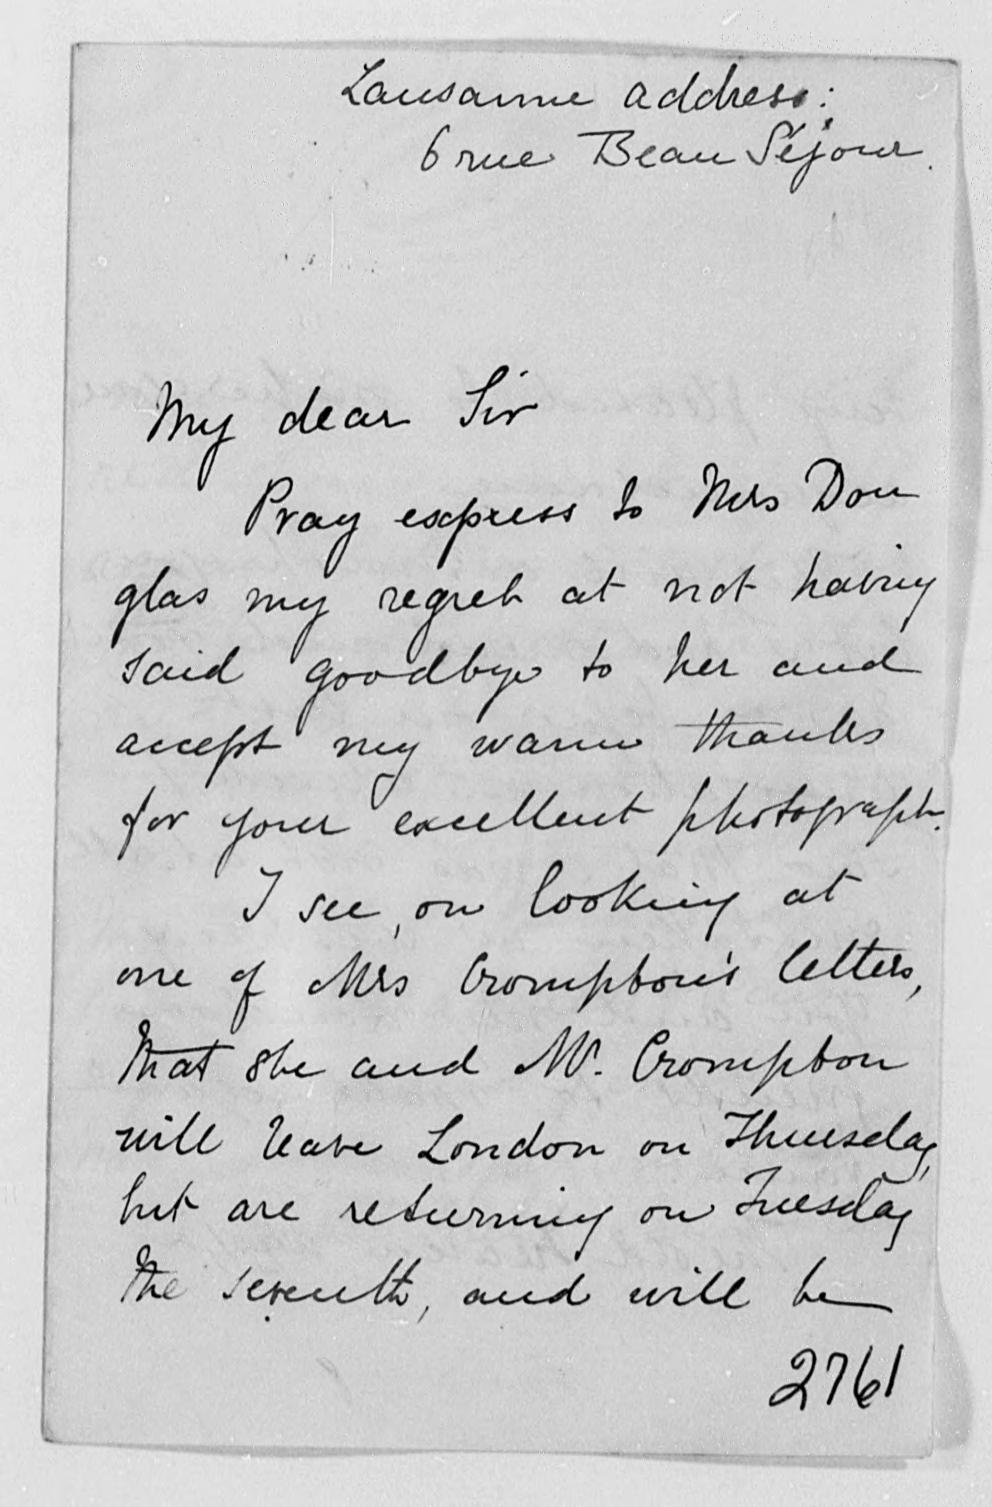 Lausanne address:
6 rue Beau Séjour.
My dear Sir
Pray express to Mrs Dou
glas my regret at not having
said goodbye to her and
accept my warm thanks
for your excellent photograph.
I see, on looking at
one of Mrs Crompton's letters,
that she and Mr. Crompton
will leave London on Thursday,
but are returning on Tuesday
the seventh, and will be
2761